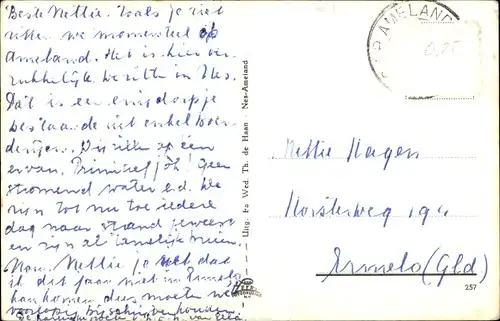 Beste Nettie. Zoals je ziet
zitten we momenteel op
Ameland. Het is hier ver-
rukkelijk. We zitten in Nes.
Dat is een enig dorpje
bestaande uit enkel boer-
derijen. Wij zitten op één
ervan. Primitief joh! Geen
stromend water e.d. We
zijn tot nu toe iedere
dag naar strand geweest
en zijn al tamelijk bruin.
Nou Nettie je ziet dat
ik dit jaar niet in Ermelo
kan komen dus moeten we
voorlopig bij schrijven houden.
van Ella
Uitg. Fa Wed. Th. de Haan - Nes-Ameland
AMELAND
0,25
Nettie Hagen
Horsterweg
Ermelo (Gld)
257